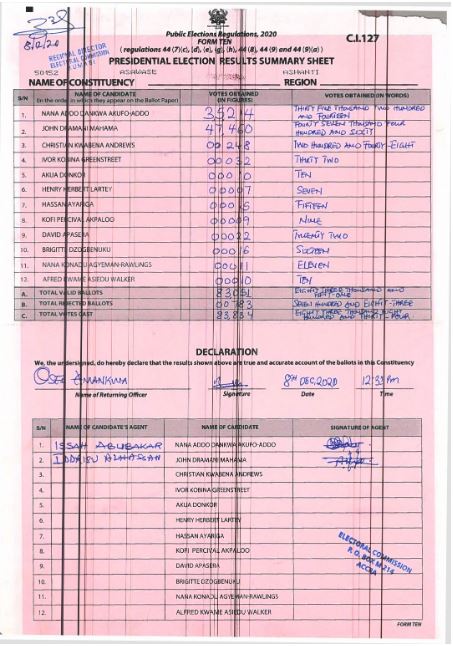 8/12/20
REGIONAL DIRECTOR
ELECTORAL COMMISSION
KUMASI
Public Elections Regulations, 2020
FORM TEN
C.I.127
( regulations 44 (7)(c), (d), (e), (g), (h), 44 (8), 44 (9) and 44 (9)(a) )
PRESIDENTIAL ELECTION RESULTS SUMMARY SHEET
ASAWASE ASHANTI
NAME OF CONSTITUENCY REGION
S/N NAME OF CANDIDATE (In the order in which they appear on the Ballot Paper) VOTES OBTAINED (IN FIGURES) VOTES OBTAINED (IN WORDS)
1. NANA ADDO DANKWA AKUFO-ADDO 35214 THIRTY FIVE THOUSAND TWO HUNDRED AND FOURTEEN
2. JOHN DRAMANI MAHAMA 47,460 FOURTY SEVEN THOUSAND FOUR HUNDRED AND SIXTY
3. CHRISTIAN KWABENA ANDREWS 00248 TWO HUNDRED AND FOURTY-EIGHT
4. IVOR KOBINA GREENSTREET 00032 THIRTY TWO
5. AKUA DONKOR 00010 TEN
6. HENRY HERBERT LARTEY 00007 SEVEN
7. HASSAN AYARIGA 00015 FIFTEEN
8. KOFI PERCIVAL AKPALOO 00009 NINE
9. DAVID APASERA 00022 TWENTY TWO
10. BRIGITTE DZOGBENUKU 00016 SIXTEEN
11. NANA KONADU AGYEMAN-RAWLINGS 00011 ELEVEN
12. ALFRED KWAME ASIEDU WALKER TEN
A. TOTAL VALID BALLOTS EIGHTY THREE THOUSAND AND FIFTY-ONE
B. TOTAL REJECTED BALLOTS 00783 SEVEN HUNDRED AND EIGHTY-THREE
C. TOTAL VOTES CAST 83,834 EIGHTY THREE THOUSAND EIGHT HUNDRED AND THIRTY-FOUR
DECLARATION
We, the undersigned, do hereby declare that the results shown above are true and accurate account of the ballots in this Constituency
8TH DEC, 2020 12:33 PM
Name of Returning Officer Signature Date Time
S/N NAME OF CANDIDATE'S AGENT NAME OF CANDIDATE SIGNATURE OF AGENT
1. ISSAH ABUBAKAR NANA ADDO DANKWA AKUFO-ADDO
2. IDDRISU ALHASSAN JOHN DRAMANI MAHAMA
3. CHRISTIAN KWABENA ANDREWS
4. IVOR KOBINA GREENSTREET
5. AKUA DONKOR
6. HENRY HERBERT LARTEY
7. HASSAN AYARIGA
8. KOFI PERCIVAL AKPALOO
9. DAVID APASERA
10. BRIGITTE DZOGBENUKU
11. NANA KONADU AGYEMAN-RAWLINGS
12. ALFRED KWAME ASIEDU WALKER
ELECTORAL COMMISSION
P. O. BOX M 214
ACCRA
FORM TEN